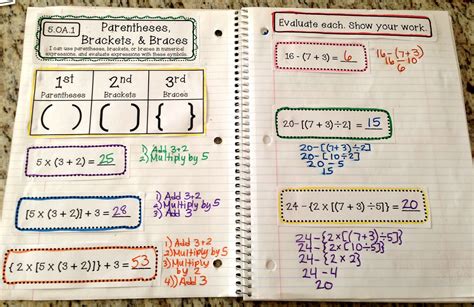 5.OA.1
Parentheses,
Brackets, & Braces
I can use parentheses, brackets, or braces in numerical
expressions, and evaluate expressions with these symbols.
1st
Parentheses
2nd
Brackets
3rd
Braces
( )
[ ]
{ }
5 x (3 + 2) = 25
1) Add 3+2
2) Multiply by 5
[5 x (3 + 2)] + 3 = 28
1) Add 3+2
2) Multiply by 5
3) Add 3
{ 2 x [5 x (3 + 2)]} + 3 = 53
1) Add 3+2
2) Multiply by 5
3) Multiply
by 2
4) Add 3
Evaluate each. Show your work.
16 - (7 + 3) = 6
16 - (7+3)
16 10
6
20-[(7 + 3) ÷ 2] = 15
20-[(7+3)÷2]
20-[10÷2]
20-5
15
24 - {2 x [(7 + 3) ÷ 5]} = 20
24-{2x[(7+3)÷5]}
24-{2x[10÷5]}
24-{2x2}
24-4
20